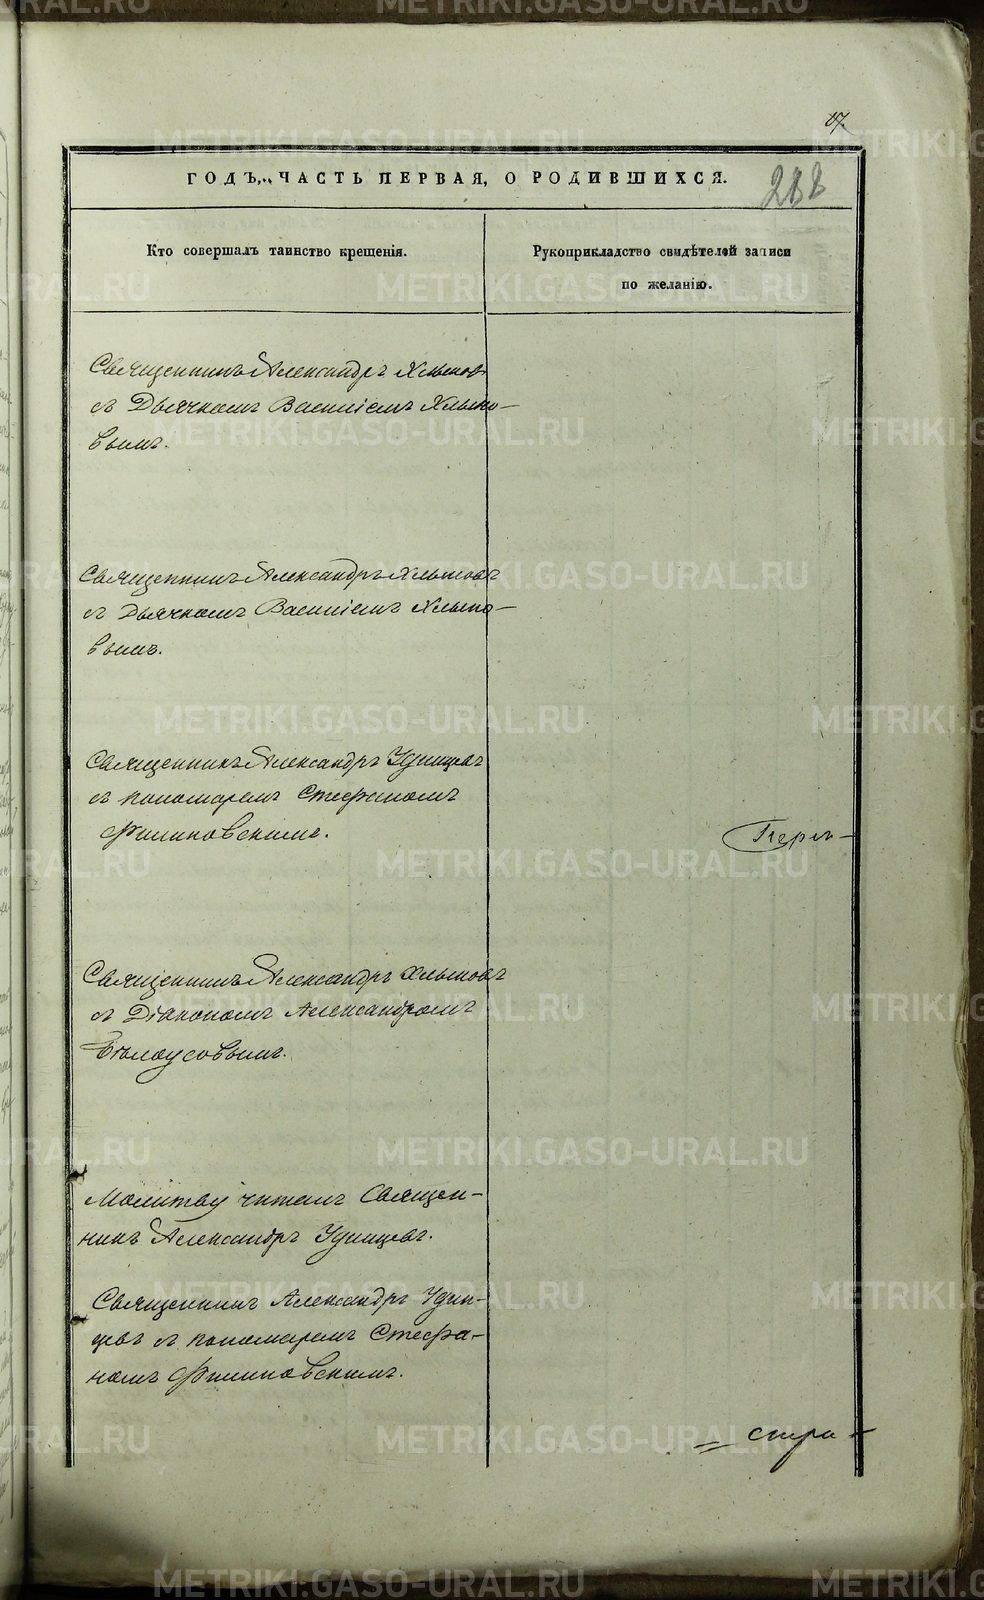 17.
ГОДЪ, ЧАСТЬ ПЕРВАЯ, О РОДИВШИХСЯ.
288
Кто совершалъ таинство крещенія.
Рукоприкладство свидѣтелей записи
по желанію.
Священникъ Александръ Хлыновъ
съ Дьячкомъ Василіемъ Хлыно-
вымъ.
Священникъ Александръ Хлыновъ
съ Дьячкомъ Василіемъ Хлыно-
вымъ.
Священникъ Александръ Удинцевъ
съ пономаремъ Стефаномъ
Филиповскимъ.
Перм-
Священникъ Александръ Хлыновъ
съ Діакономъ Александромъ
Бѣлоусовымъ.
Молитву читалъ Священ-
никъ Александръ Удинцевъ.
Священникъ Александръ Удин-
цевъ съ пономаремъ Стефа-
номъ Филиповскимъ.
= стра-
METRIKI.GASO-URAL.RU